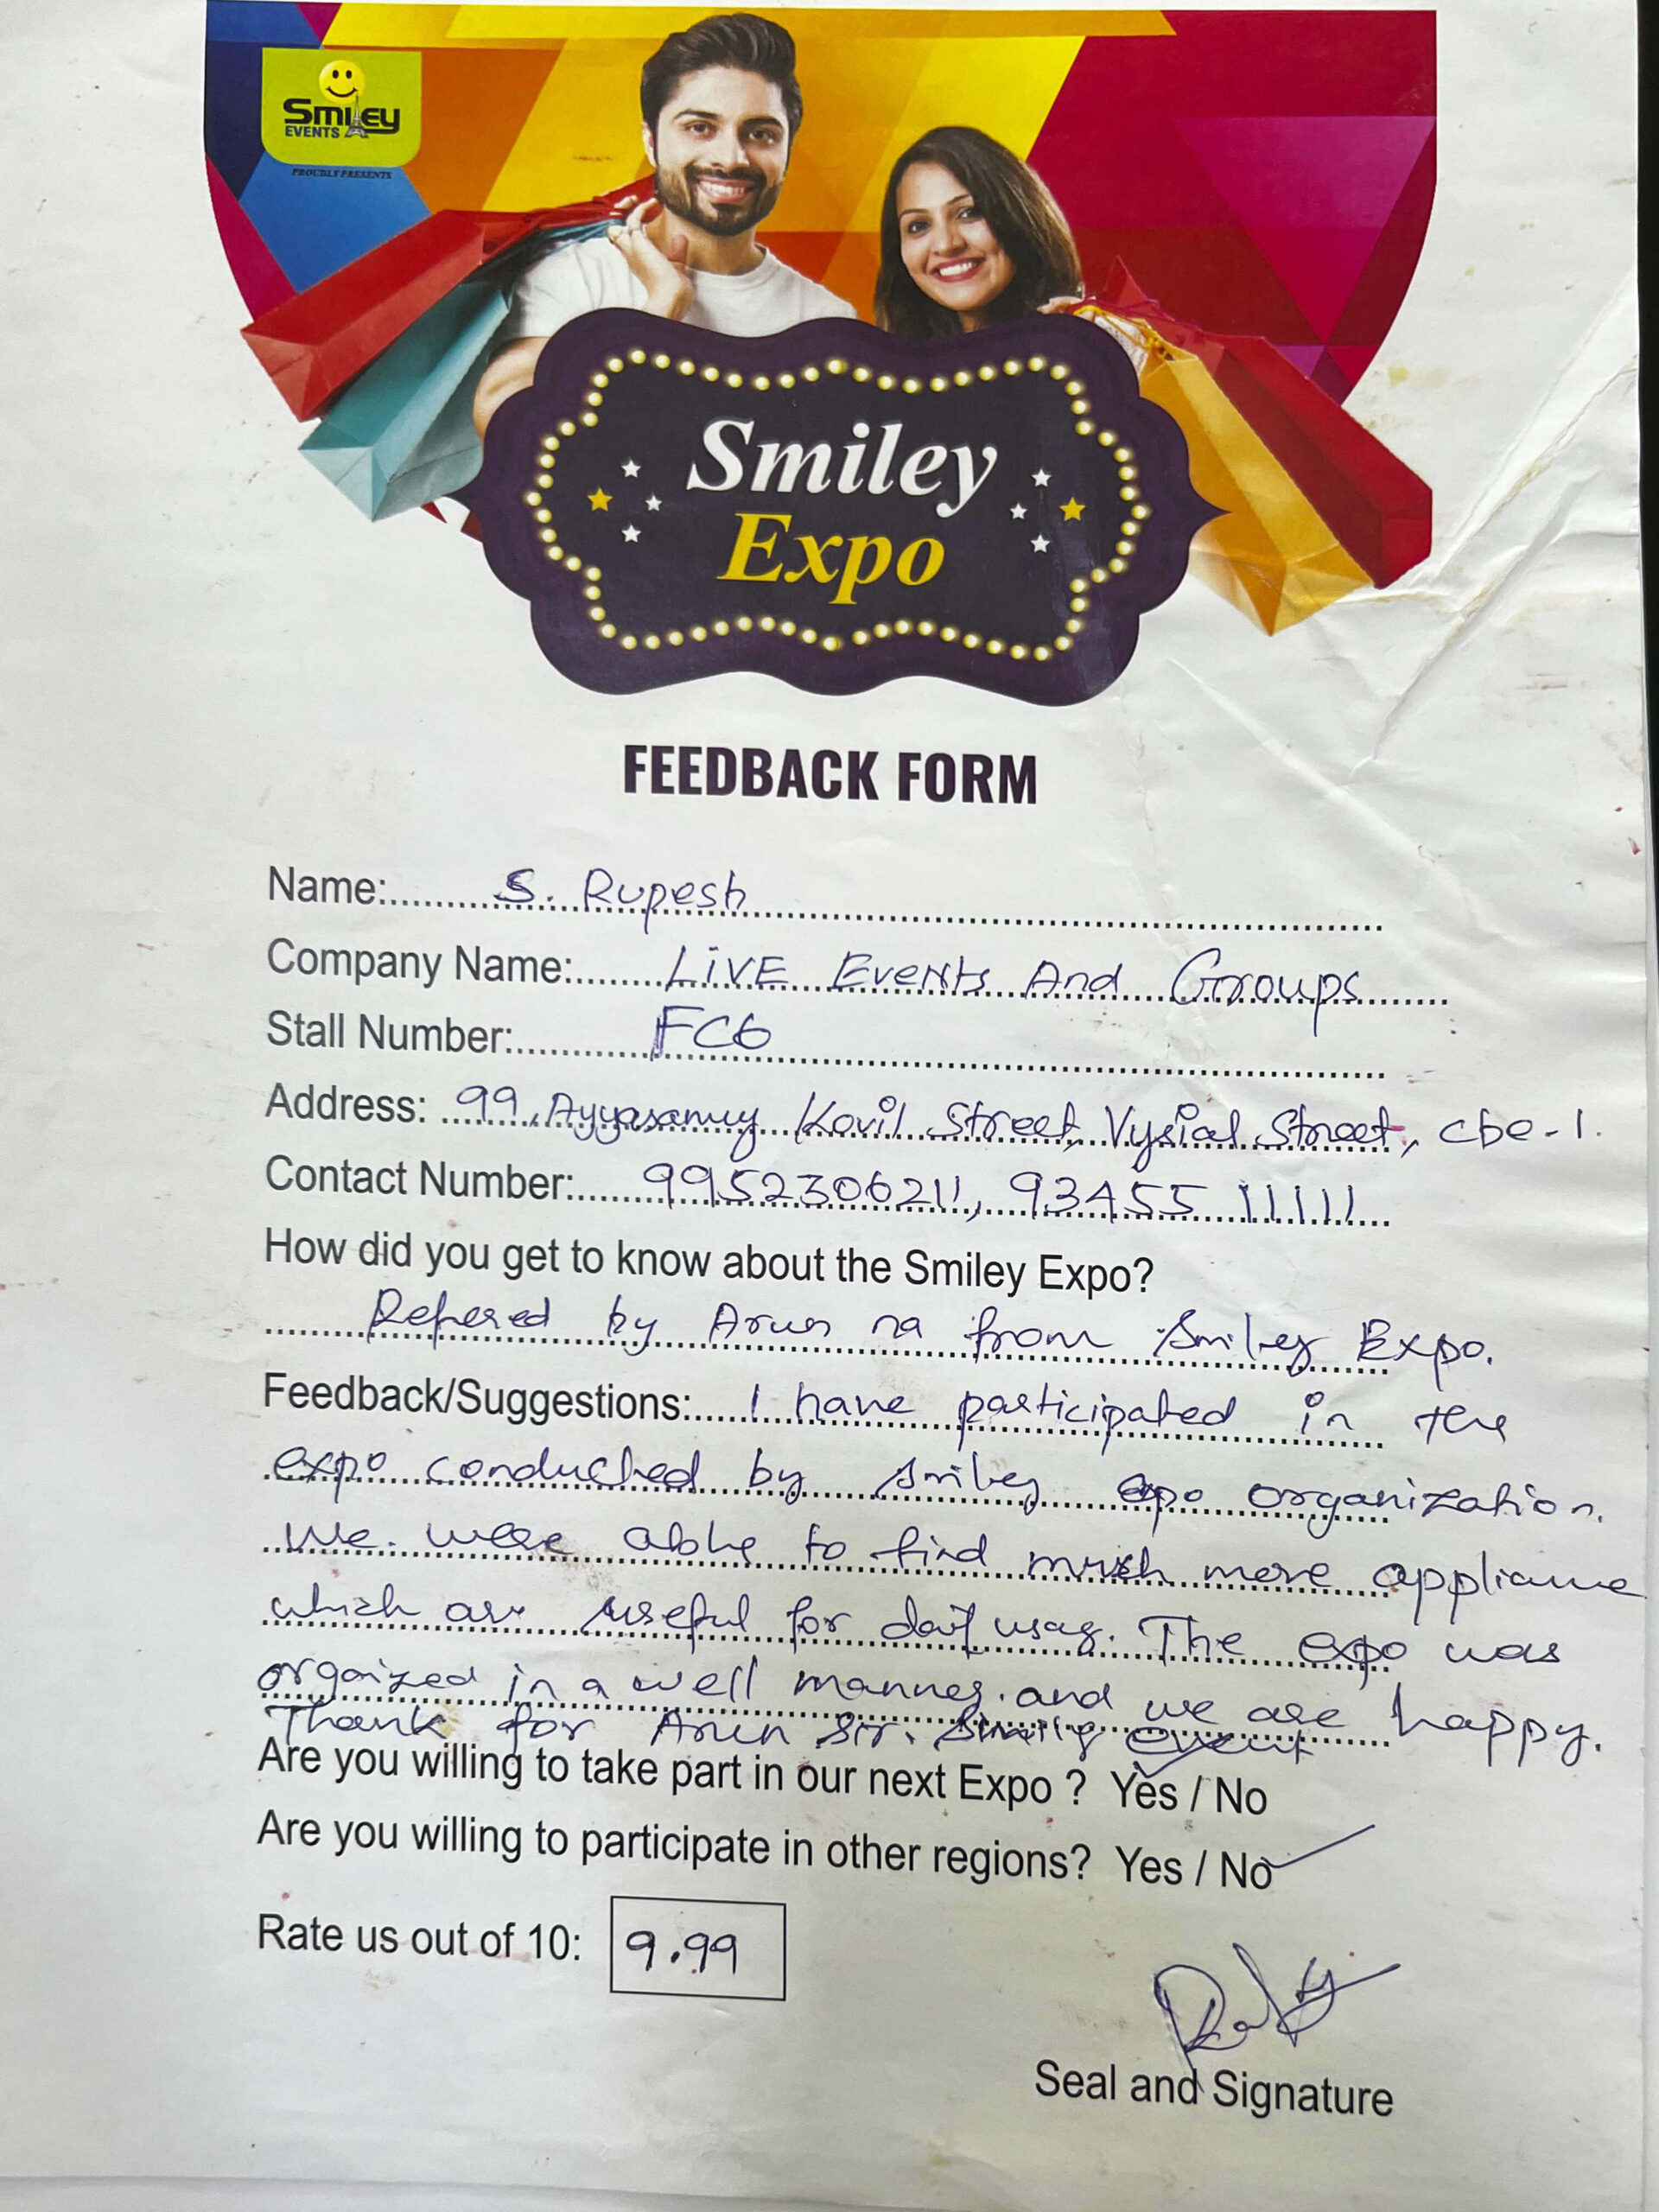 Smiley
EVENTS
PROUDLY PRESENTS
Smiley
Expo
FEEDBACK FORM
Name: S. Rupesh
Company Name: LiVE Events And Groups
Stall Number: FC6
Address: 99, Ayyasamy Kovil Street, Vysial Street, cbe-1.
Contact Number: 9952306211, 93455 11111
How did you get to know about the Smiley Expo?
Refered by Arun na from Smiley Expo.
Feedback/Suggestions: I have participated in the
expo conducted by Smiley expo organization.
We were able to find much more appliance
which are useful for daily usag. The expo was
orgaized in a well manner. and we are happy.
Thank for Arun Sir. Smily event
Are you willing to take part in our next Expo ? Yes / No
Are you willing to participate in other regions? Yes / No
Rate us out of 10: 9.99
Seal and Signature